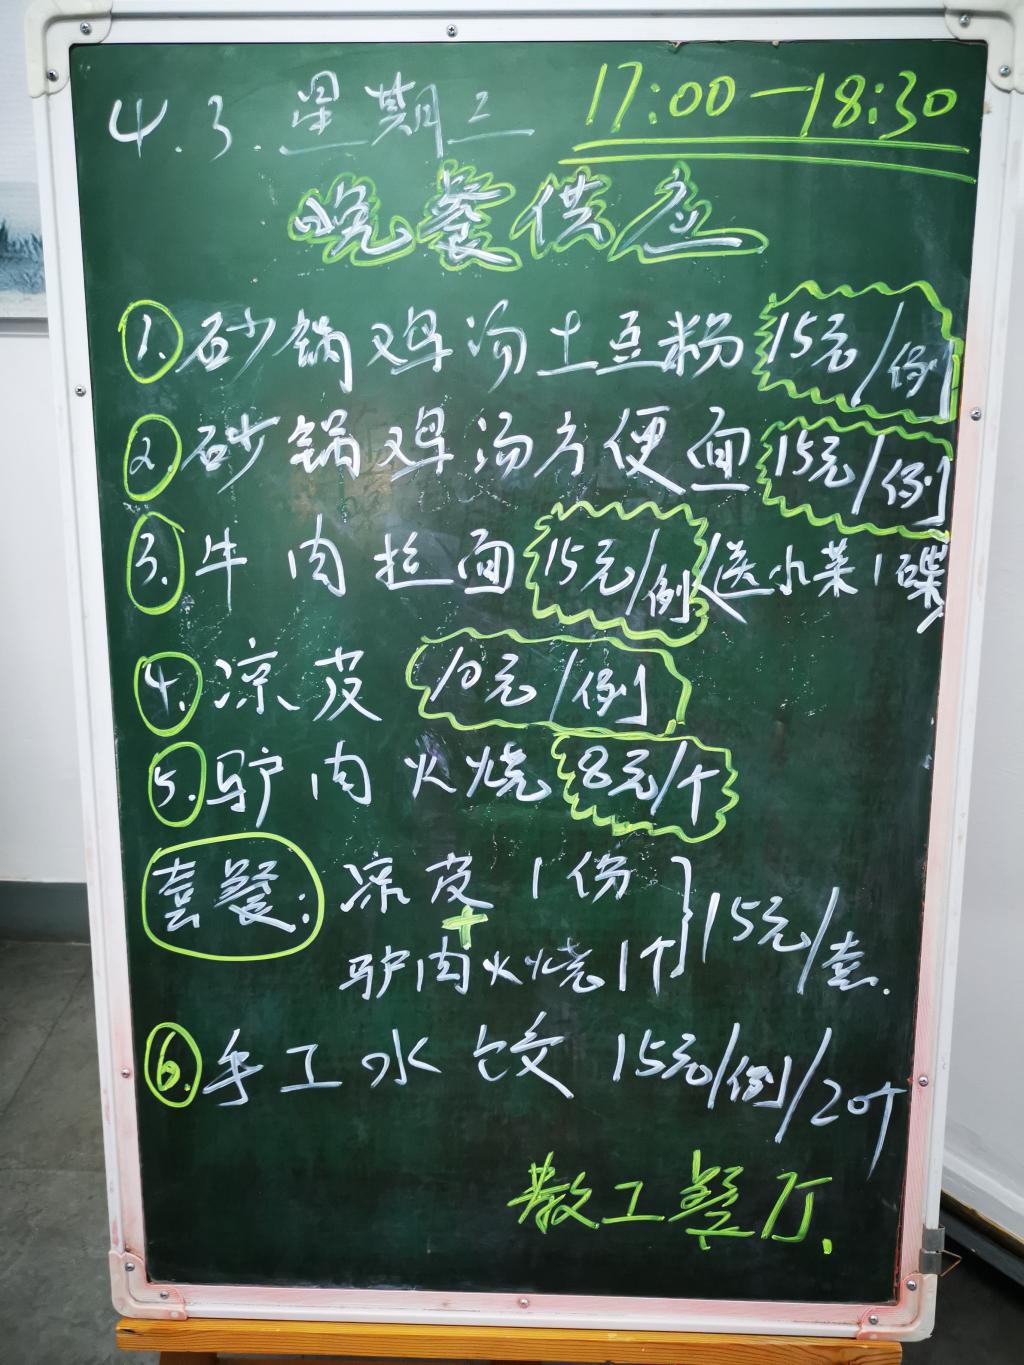 4.3.星期二 17:00—18:30
晚餐供应
1.砂锅鸡汤土豆粉 15元/例
2.砂锅鸡汤方便面 15元/例
3.牛肉拉面 15元/例/送小菜1碟
4.凉皮 10元/例
5.驴肉火烧 8元/个
套餐:凉皮1份
+
驴肉火烧1个
}15元/套.
6.手工水饺 15元/例/20个
教工餐厅.